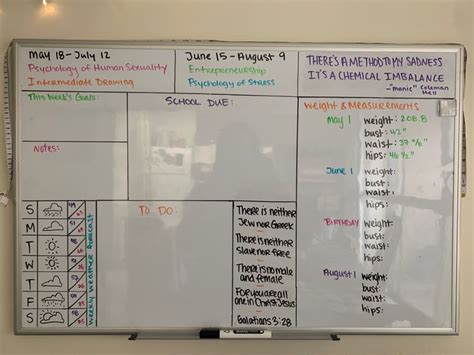 May 18 - July 12
Psychology of Human Sexuality
Intermediate Drawing
June 15 - August 9
Entrepreneurship
Psychology of Stress
THERE'S A METHOD TO MY SADNESS
IT'S A CHEMICAL IMBALANCE
- "manic" Coleman Hell
This Week's Goals:
SCHOOL DUE:
Notes:
Weight & Measurements
May 1
weight: 208.8
bust: 42"
waist:
hips:
June 1
weight:
bust:
waist:
hips:
BIRTHDAY
weight:
bust:
waist:
hips:
August 1
weight:
bust:
waist:
hips:
S
M
T
W
T
F
S
Weekly weather forecast
TO DO:
There is neither
Jew nor Greek
There is neither
Slave nor Free
There is no male
and female
For you are all
one in Christ Jesus
Galatians 3:28